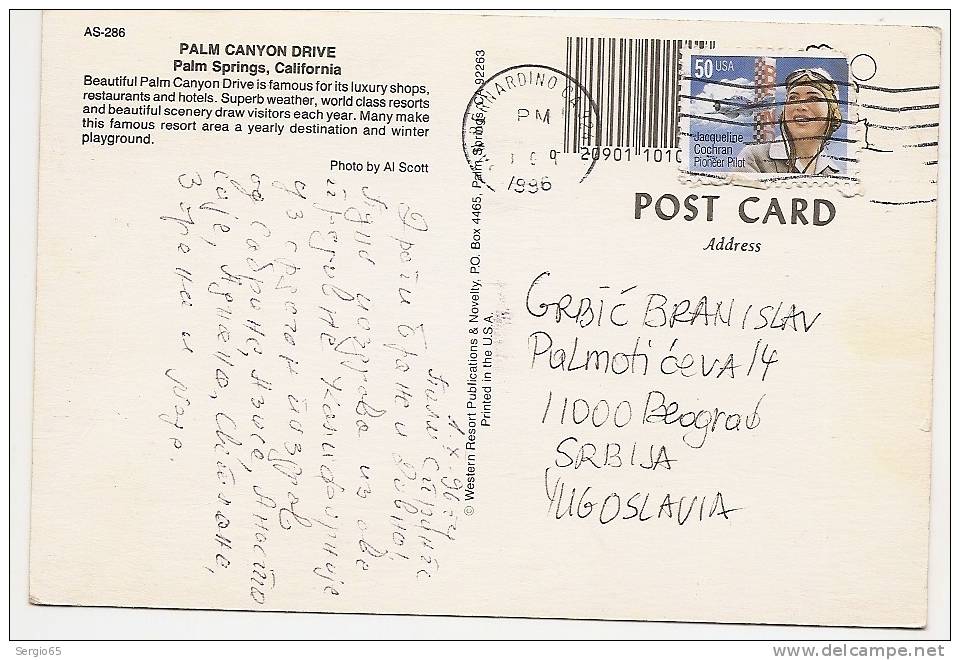 AS-286
PALM CANYON DRIVE
Palm Springs, California
Beautiful Palm Canyon Drive is famous for its luxury shops,
restaurants and hotels. Superb weather, world class resorts
and beautiful scenery draw visitors each year. Many make
this famous resort area a yearly destination and winter
playground.
Photo by Al Scott
Палм Спрингс
1.X.96.
Драги Бране и
Пуно поздрава из ове
предивне Калифорније
уз срдачан поздрав
од Сабрине,
Зорана и
© Western Resort Publications & Novelty, P.O. Box 4465, Palm Springs, CA 92263
Printed in the U.S.A.
SAN BERNARDINO CA
PM
1996
20901 1010
50 USA
Jacqueline
Cochran
Pioneer Pilot
POST CARD
Address
GRBIĆ BRANISLAV
Palmotićeva 14
11000 Beograd
SRBIJA
YUGOSLAVIA
Sergio65
http://www.delcampe.net